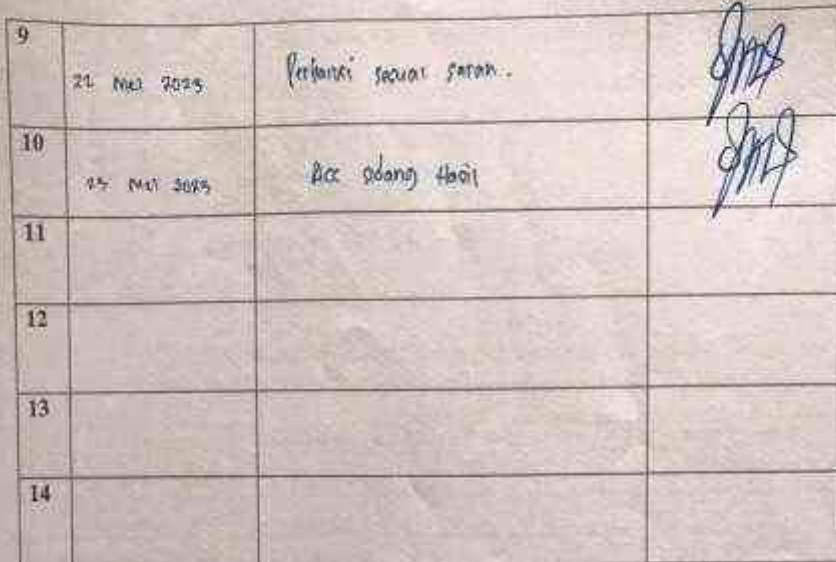 9
22 Mei 2023
Perbaiki sesuai saran.
10
23 Mei 2023
Acc sidang Hasil
11
12
13
14